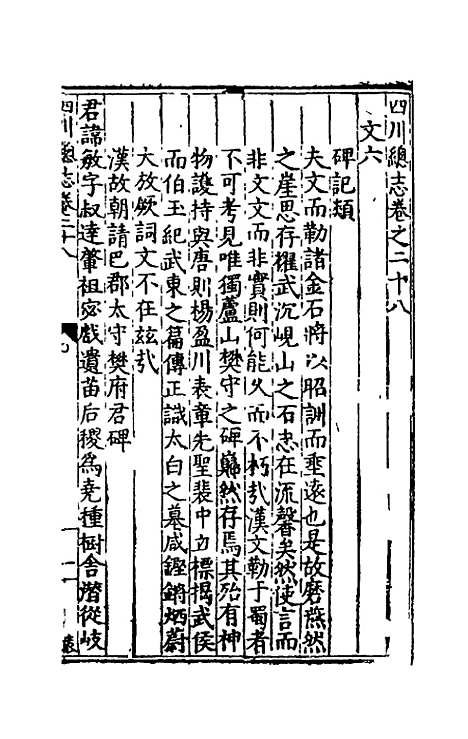 四川總志卷之二十八
文六
碑記類
夫文而勒諸金石將以昭訓而垂遠也是故磨燕然
之崖思存耀武沉峴山之石忠在流馨矣然使言而
非文文而非實則何能久而不朽哉漢文勒于蜀者
不可考見唯獨蘆山樊守之碑巋然存焉其殆有神
物護持與唐則楊盈川表章先聖裴中立標揭武侯
而伯玉紀武東之篇傳正識太白之墓咸鏗鏘炳蔚
大放厥詞文不在玆哉
漢故朝請巴郡太守樊府君碑
君諱敏字叔達肇祖宓戲遺苗后稷為堯種樹舍潛從岐
四川總志卷二十八